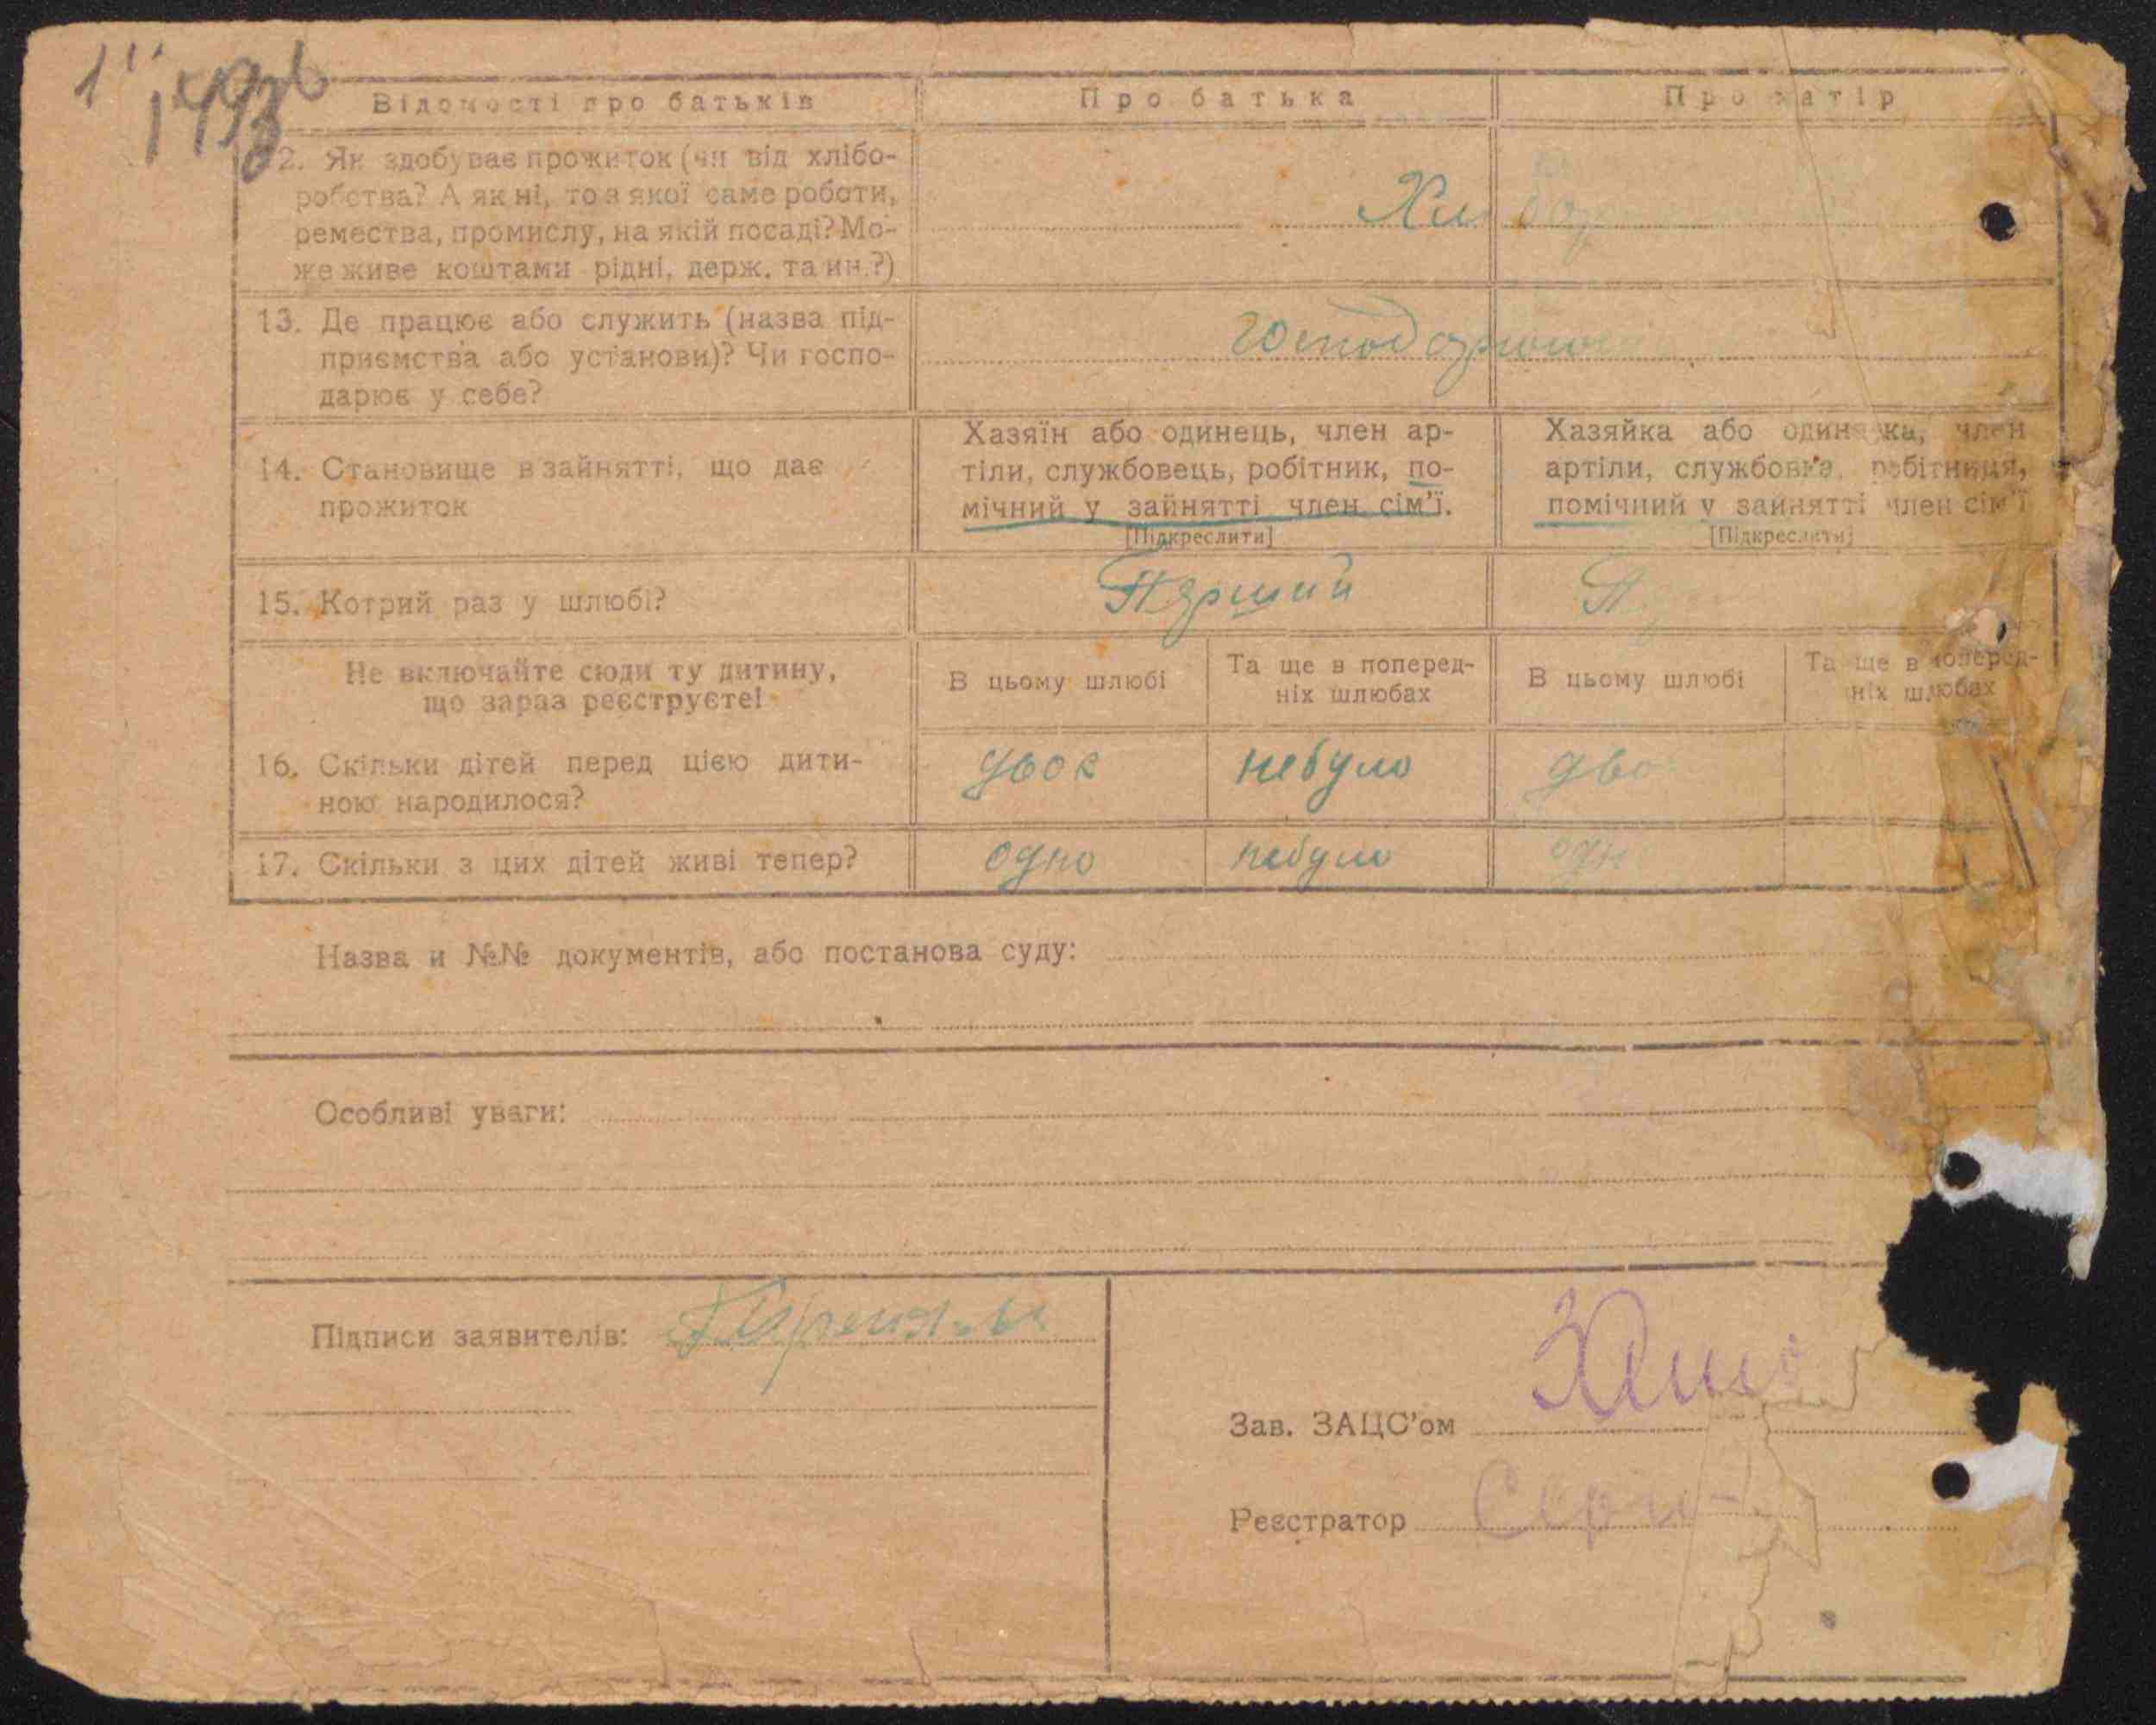 Відомості про батьків Про батька Про матір
2. Як здобуває прожиток (чи від хлібо-
робства? А як ні, то з якої саме роботи,
ремества, промислу, на якій посаді? Мо-
же живе коштами рідні, держ. та ин.?)
13. Де працює або служить (назва під-
приємства або установи)? Чи госпо-
дарює у себе?
14. Становище в зайнятті, що дає
прожиток
Хазяїн або одинець, член ар-
тіли, службовець, робітник, по-
мічний у зайнятті член сім'ї.
[Підкреслити]
Хазяйка або одиначка, член
артіли, службовка, робітниця,
помічний у зайнятті член сім'ї
[Підкреслити]
15. Котрий раз у шлюбі? Перший
Не включайте сюди ту дитину,
що зараз реєструєте!
В цьому шлюбі
Та ще в поперед-
ніх шлюбах
В цьому шлюбі
Та ще в поперед-
ніх шлюбах
16. Скільки дітей перед цією дити-
ною народилося?
двое небуло дво
17. Скільки з цих дітей живі тепер? одно небуло одн
Назва и №№ документів, або постанова суду:
Особливі уваги:
Підписи заявителів:
Зав. ЗАЦС'ом
Реєстратор